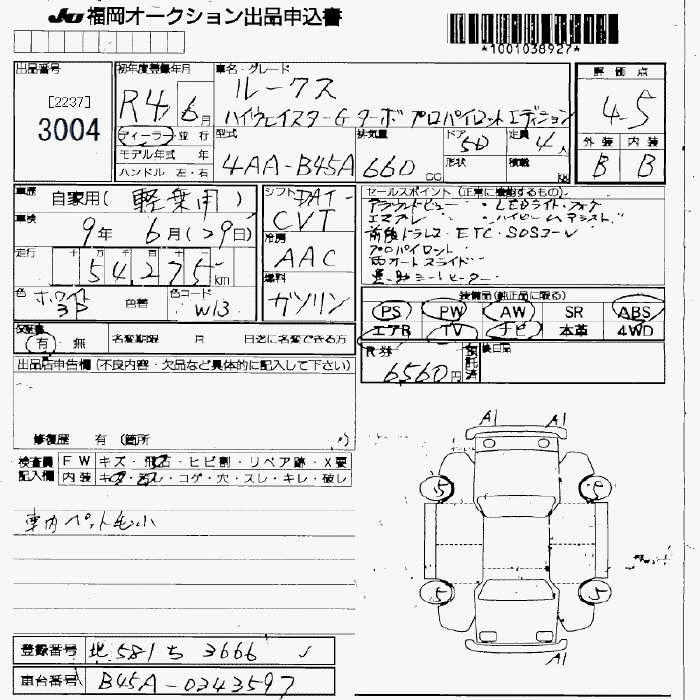 JU 福岡オークション出品申込書
*1001038927*
出品番号
[2237]
3004
初年度登録年月
R4年 6月
ディーラー 並行
モデル年式 年
ハンドル 左・右
車名・グレード
ルークス
ハイウェイスターGターボ プロパイロットエディション
型式
4AA-B45A
排気量
660 CC
ドア
5D
形状
定員
4人
積載
kg
評価点
4.5
外装 内装
B B
車歴
自家用(軽乗用)
車検
9年 6月(29日)
走行
54,275km
色
ホワイト
3P
色替
色コード
W13
シフト DAT
CVT
冷房
AAC
燃料
ガソリン
セールスポイント(正常に機能するもの)
アラウンドビュー・LEDライト・フォグ
エマブレ・ハイビームアシスト
前後ドラレコ・ETC・SOSコール
プロパイロット
両オートスライド
装備品(純正品に限る)
PS PW AW SR ABS
エアB TV ナビ 本革 4WD
保証書
有・無
名変期限 月 日迄に名変できる方
R券
6560円
預託済
後日品
出品店申告欄(不良内容・欠品など具体的に記入して下さい)
修復歴 有(箇所 )
検査員記入欄
FW キズ・飛石・ヒビ割・リペア跡・X要
内装 キズ・汚レ・コゲ・穴・スレ・キレ・破レ
車内ペット毛小
A1 A1
5 5
5 5
A1
登録番号 地 581 ち 3666
車台番号 B45A-0343597